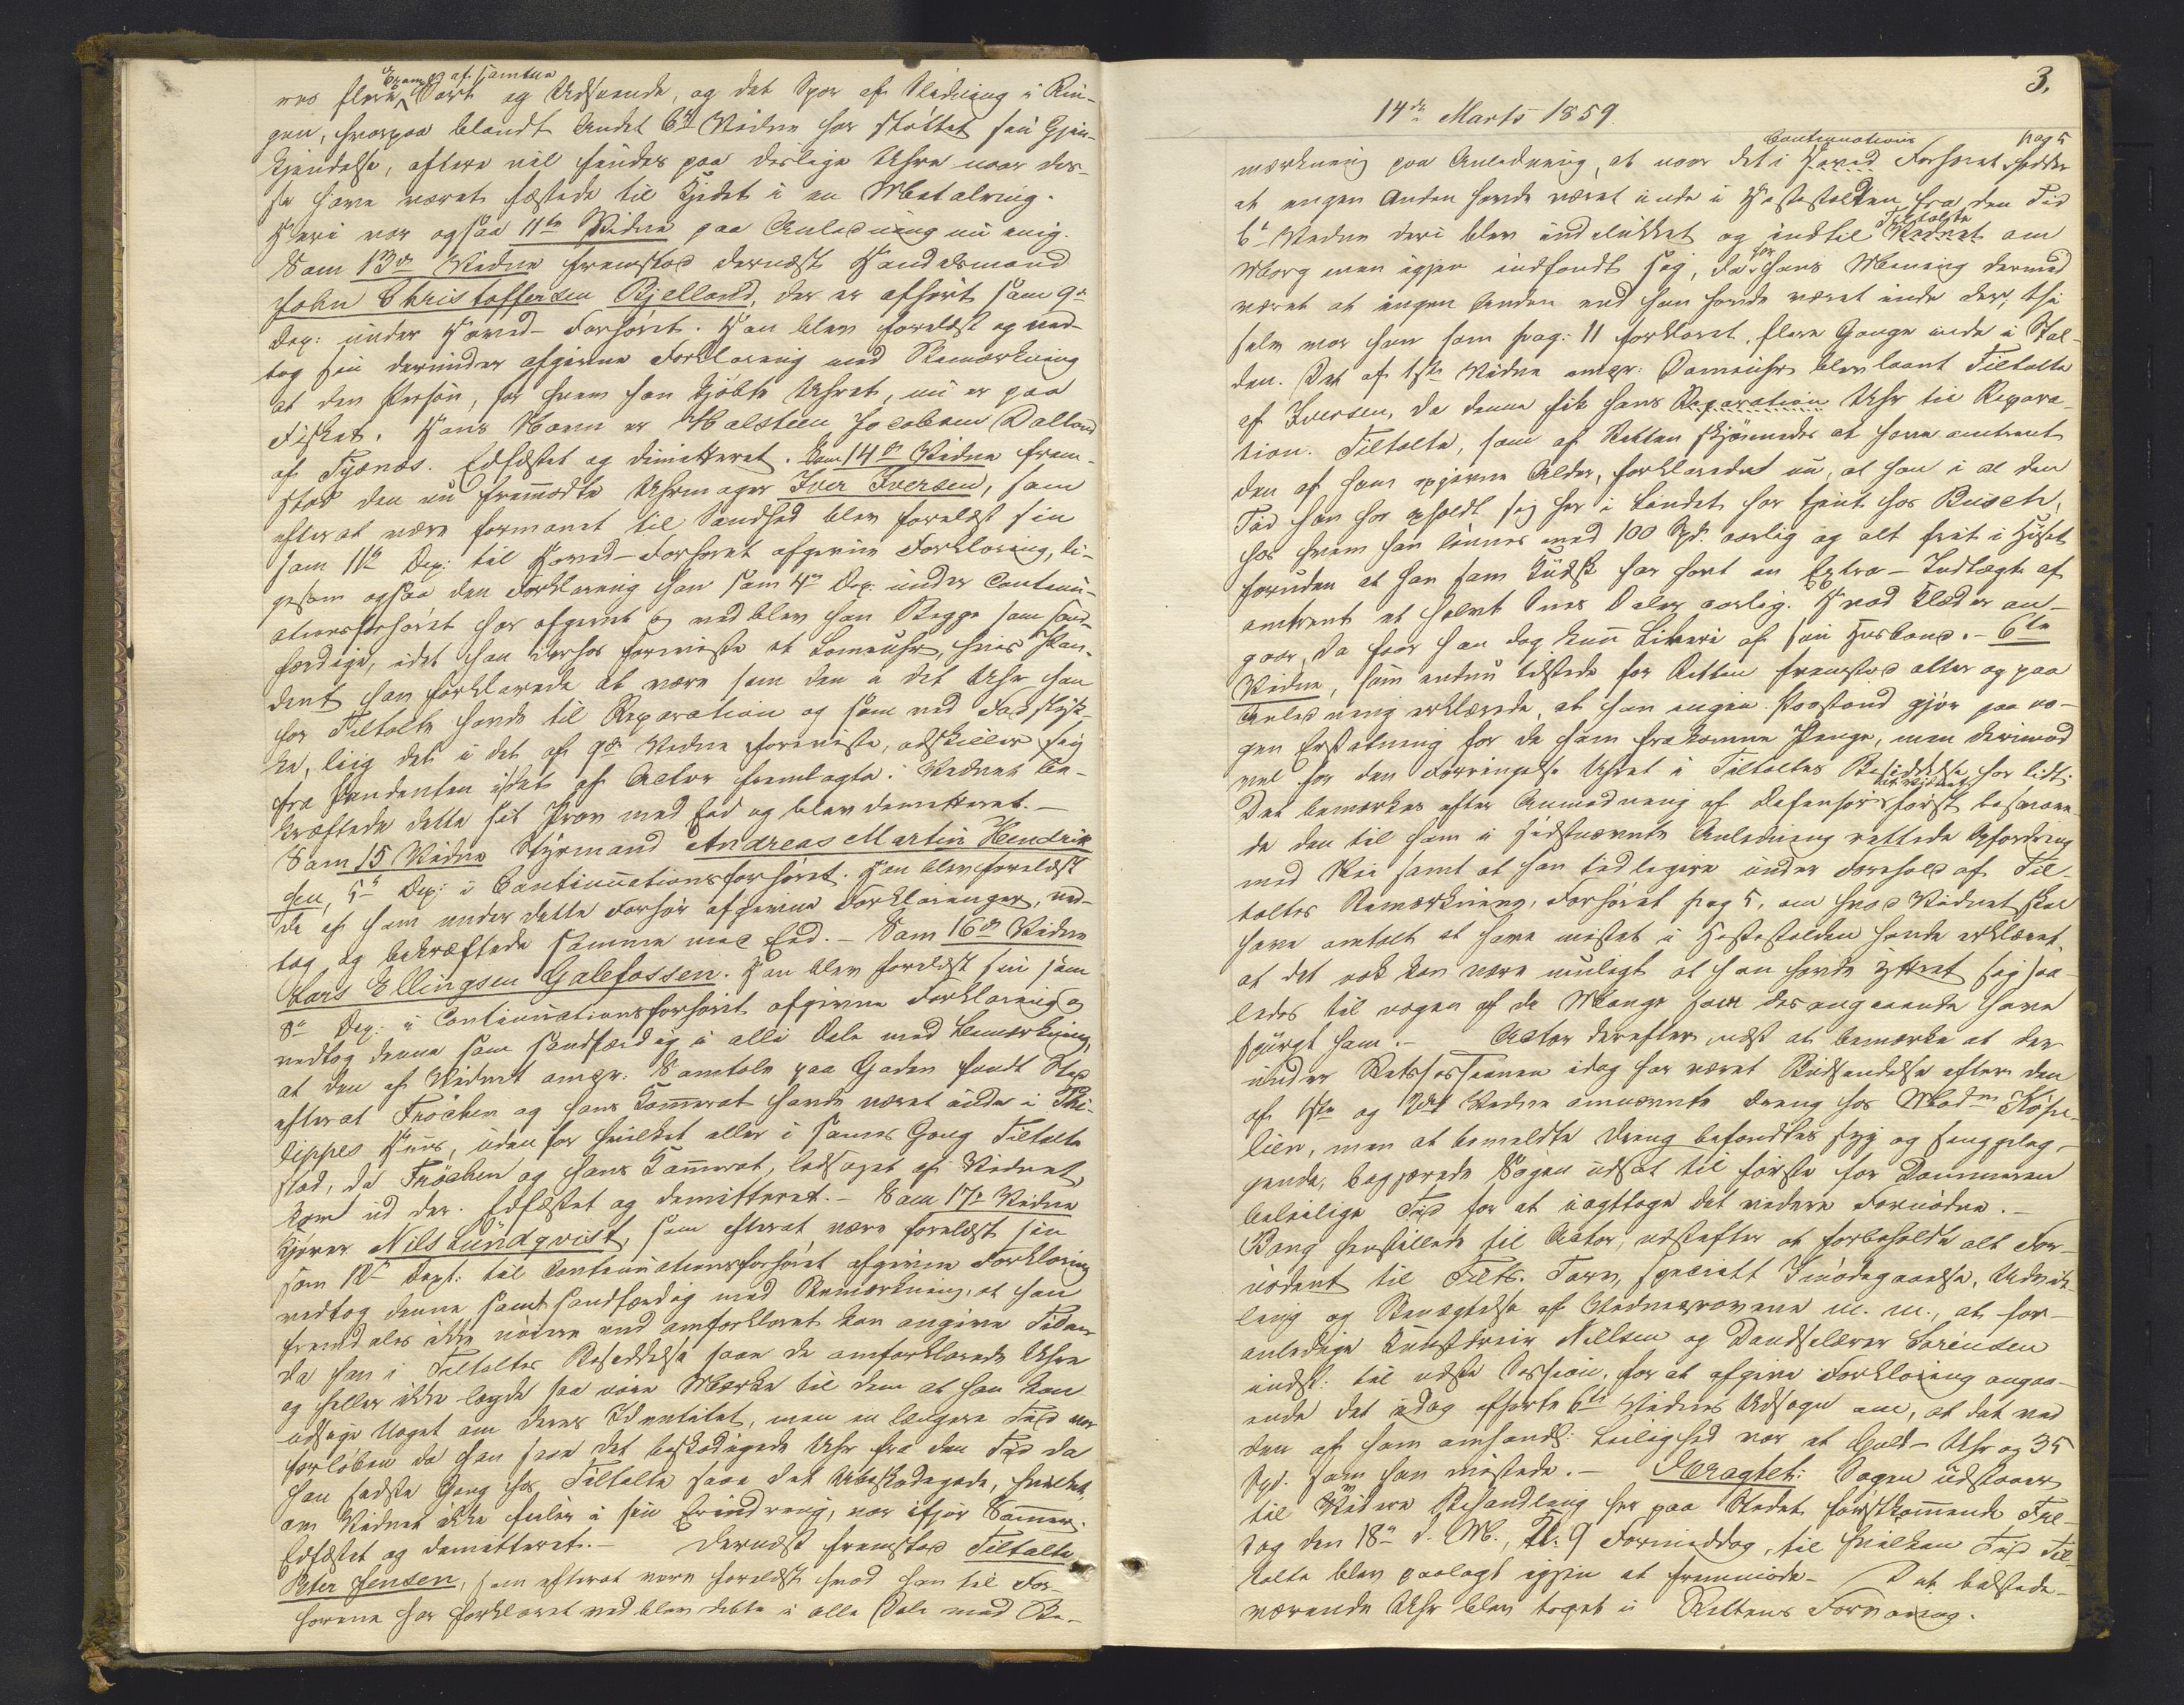 Exempl. af samme
res flere Sort og Udseende, og det Spor af Slidning i Rin-
gen, hvorpaa blandt Andet 6te Vidne har støttet sin Gjen-
kjendelse, oftere vil findes paa deslige Uhre naar dis-
se have været fæstede til Kjedet i en Metalring.
Heri var ogsaa 11te Vidne paa Anledning nu enig.
Som 13de Vidne fremstod dernæst Handelsmand
John Christoffersen Bjelland, der er afhørt som 9de
Dep: under Hoved-Forhøret. Han blev forelæst og ved-
tog sin derunder afgivne Forklaring med Bemærkning
at den Person, for hvem han kjøbte Uhret, nu er paa
Fisket. Hans Navn er Halsteen Jacobsen Dalland
af Tysnæs. Edfæstet og dimitteret. Som 14de Vidne frem-
stod den nu fremmødte Uhrmager Iver Iversen, som
efterat være formanet til Sandhed blev forelæst sin
som 11te Dep: til Hoved-Forhøret afgivne Forklaring, li-
gesom ogsaa den Forklaring han som 4de Dep. under Continu-
ationsforhøret har afgivet og vedblev han Begge som sand-
færdige, idet han derhos foreviste et Lommeuhr, hvis Pen-
dent han forklarede at være som den i det Uhr han
for Tiltalte havde til Reparation og som ved Fadstyk-
ke, liig det i det af 9de Vidne foreviste, adskiller sig
fra Pendenten i det af Actor fremlagte. Vidnet be-
kræftede dette sit Prov med Eed og blev demitteret.-
Som 15 Vidne Styrmand Andreas Martin Hendrik
sen, 5te Dep: i Continuationsforhøret. Han blev forelæst
de af ham under dette Forhør afgivne Forklaringer, ved-
tog og bekræftede samme med Eed. - Som 16de Vidne
Lars Ellingsen Galefossen. Han blev forelæst sin som
8de Dep. i Continuationsforhøret afgivne Forklaring og
vedtog denne som sandfærdig i alle Dele med Bemærkning,
at den af Vidnet omgr: Samtale paa Gaden fandt Sted
efterat Fröchen og hans Kammerat havde været inde i Phi-
lippes Huus, udenfor hvilket eller i sammes Gang Tiltalte
stod, da Fröchen og hans Kammerat, ledsaget af Vidnet,
kom ud der. Edfæstet og demitteret. - Som 17de Vidne
Kjører Nils Lundqvist, som efterat være forelæst sin
som 12te Dept: til Continuationsforhøret afgivne Forklaring
vedtog denne samt sandfærdig med Bemærkning, at han
fremdeles ikke nøiere end omforklaret kan angive Tiden
da han i Tiltaltes Besiddelse saae de omforklarede Uhre
og heller ikke lagde saa nøie Mærke til dem at han kan
udsige Noget om deres Identitet, men en længere Tid var
forløben da han saae det beskadigede Uhr fra den Tid da
han sidste Gang hos Tiltalte saae det Ubeskadigede, hvilket,
om Vidnet ikke feiler i sin Erindring, var ifjor Sommer.
Edfæstet og demitteret. - Dernæst fremstod Tiltalte
Peter Jensen, som efterat være forelæst hvad han til For-
hørene har forklaret vedblev dette i alle Dele med Be-
3.
14de Marts 1859.
Continuations pag 5
mærkning paa Anledning, at naar det i Hoved Forhøret hedder
at ingen Anden havde været inde i Hestestalden fra den Tid
6te Vidne deri blev indelukket og indtil Vidnet om
Tiltalte
Morgenen igjen indfandt sig, da har hans Mening dermed
været at ingen Anden end han havde været inde der; thi
selv var han som pag: 11 forklaret, flere Gange inde i Stal-
den. Det af 1ste Vidne omgr: Dameuhr blev laant Tiltalte
af Iversen, da denne fik hans Reparation Uhr til Repara-
tion. Tiltalte, som af Retten skjønnedes at have omtrent
den af ham opgivne Alder, forklarede nu, at han i al den
Tid han har opholdt sig her i Landet har tjent hos Busch,
hos hvem han lønnes med 100 Spd. aarlig og alt frit i Huset
foruden at han som Kudsk har havt en Extra-Indtægt af
omtrent et halvt Snes Daler aarlig. Hvad Klæder an-
gaar, da faar han dog kun Liberi af sin Husbond. - 6te
Vidne, som endnu tilstede for Retten fremstod atter og paa
Anledning erklærede, at han ingen Paastand gjør paa no-
gen Erstatning for de ham frakomne Penge, men derimod
vel for den Forringelse Uhret i Tiltaltes Besiddelse har lidt.
Det bemærkes efter Anmodning af Defensor først besvare-
de den til ham i sidstnævnte Anledning rettede Opfordring
med Nei samt at han tidligere under Forehold af Til-
taltes Bemærkning, Forhøret pag 5, om hvad Vidnet skal
have omtalt at have mistet i Hestestalden havde erklæret,
at det nok kan være muligt at han havde yttret sig saa-
ledes til nogen af de Mange som desangaaende have
spurgt ham. - Actor derefter næst at bemærke at der
under Retssessionen idag har været Budsendelse efter den
af 1ste og 2det Vidne omnævnte Dreng hos Madm Köhe-
lien, men at bemeldte Dreng befandtes syg og senggelig-
gende, begjærede Sagen udsat til første for Dommeren
beleilige Tid for at iagttage det videre Fornødne. -
Bang henstillede til Actor, næstefter at forbeholde alt For-
nødent til Tilts. Tarv, specielt Imødegaaelse, Udvik-
ling og Benægtelse af Vidneprovene m. m., at for-
anledige Nillsen og Dandselærer Sörensen
indst: til næste Session, for at afgive Forklaring angaa-
ende det idag afhørte 6te Vidnes Udsagn om, at det ved
den af ham omhandl: Leilighed var et Guld-Uhr og 35
Spd. som han mistede. - Eragtet: Sagen udstaaer
til videre Behandling her paa Stedet førstkommende Fre-
dag den 18de d. M., Kl. 9 Formiddag, til hvilken Tid Til-
talte blev paalagt igjen at fremmøde. - Det tilstede-
værende Uhr blev taget i Rettens Forvaring.